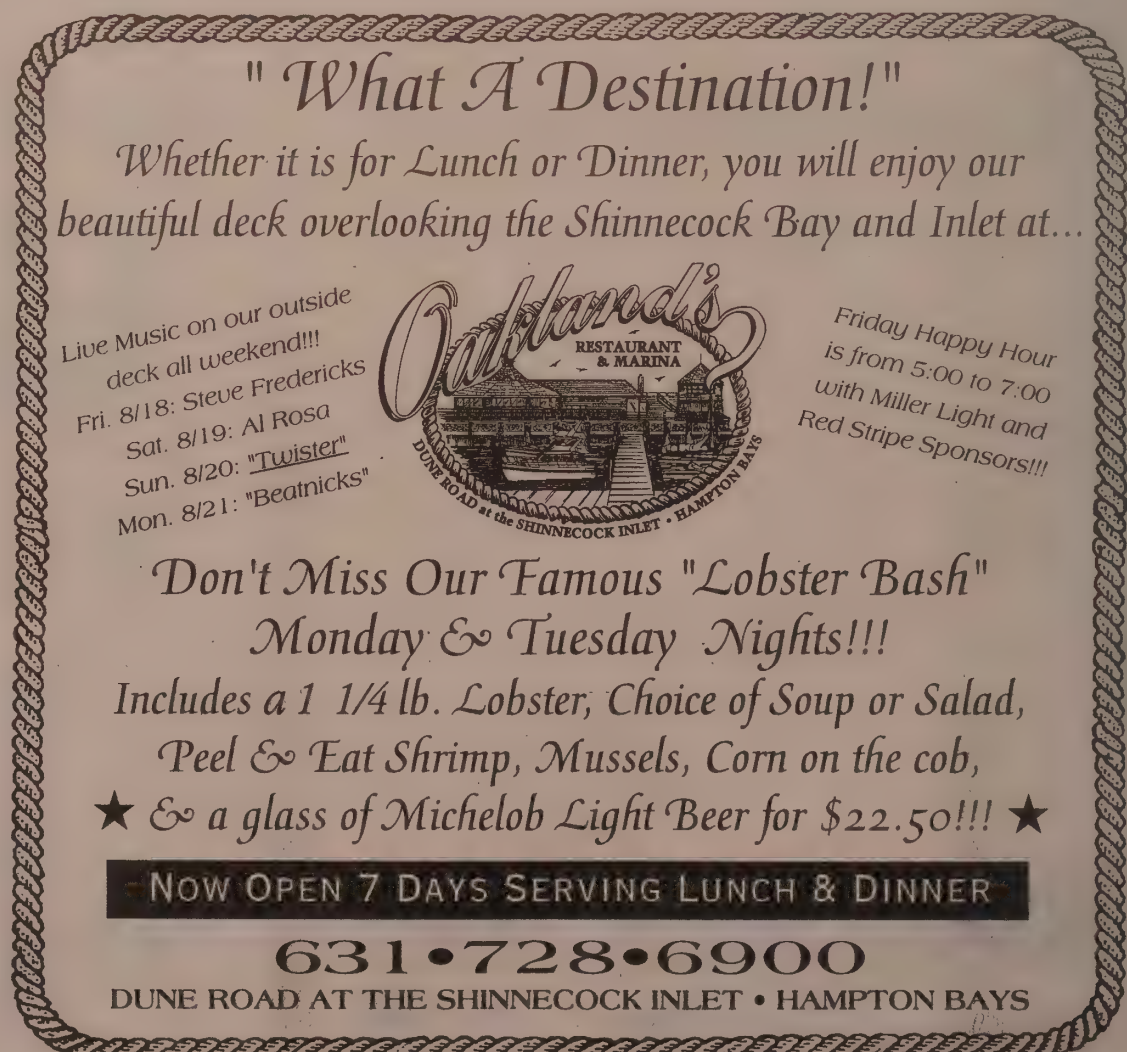 " What A Destination!"
Whether it is for Lunch or Dinner, you will enjoy our
beautiful deck overlooking the Shinnecock Bay and Inlet at...
Live Music on our outside
deck all weekend!!!
Fri. 8/18: Steve Fredericks
Sat. 8/19: Al Rosa
Sun. 8/20: "Twister"
Mon. 8/21: "Beatnicks"
Oakland's
RESTAURANT
& MARINA
DUNE ROAD at the SHINNECOCK INLET • HAMPTON BAYS
Friday Happy Hour
is from 5:00 to 7:00
with Miller Light and
Red Stripe Sponsors!!!
Don't Miss Our Famous "Lobster Bash"
Monday & Tuesday Nights!!!
Includes a 1 1/4 lb. Lobster, Choice of Soup or Salad,
Peel & Eat Shrimp, Mussels, Corn on the cob,
★ & a glass of Michelob Light Beer for $22.50!!! ★
NOW OPEN 7 DAYS SERVING LUNCH & DINNER
631•728•6900
DUNE ROAD AT THE SHINNECOCK INLET • HAMPTON BAYS